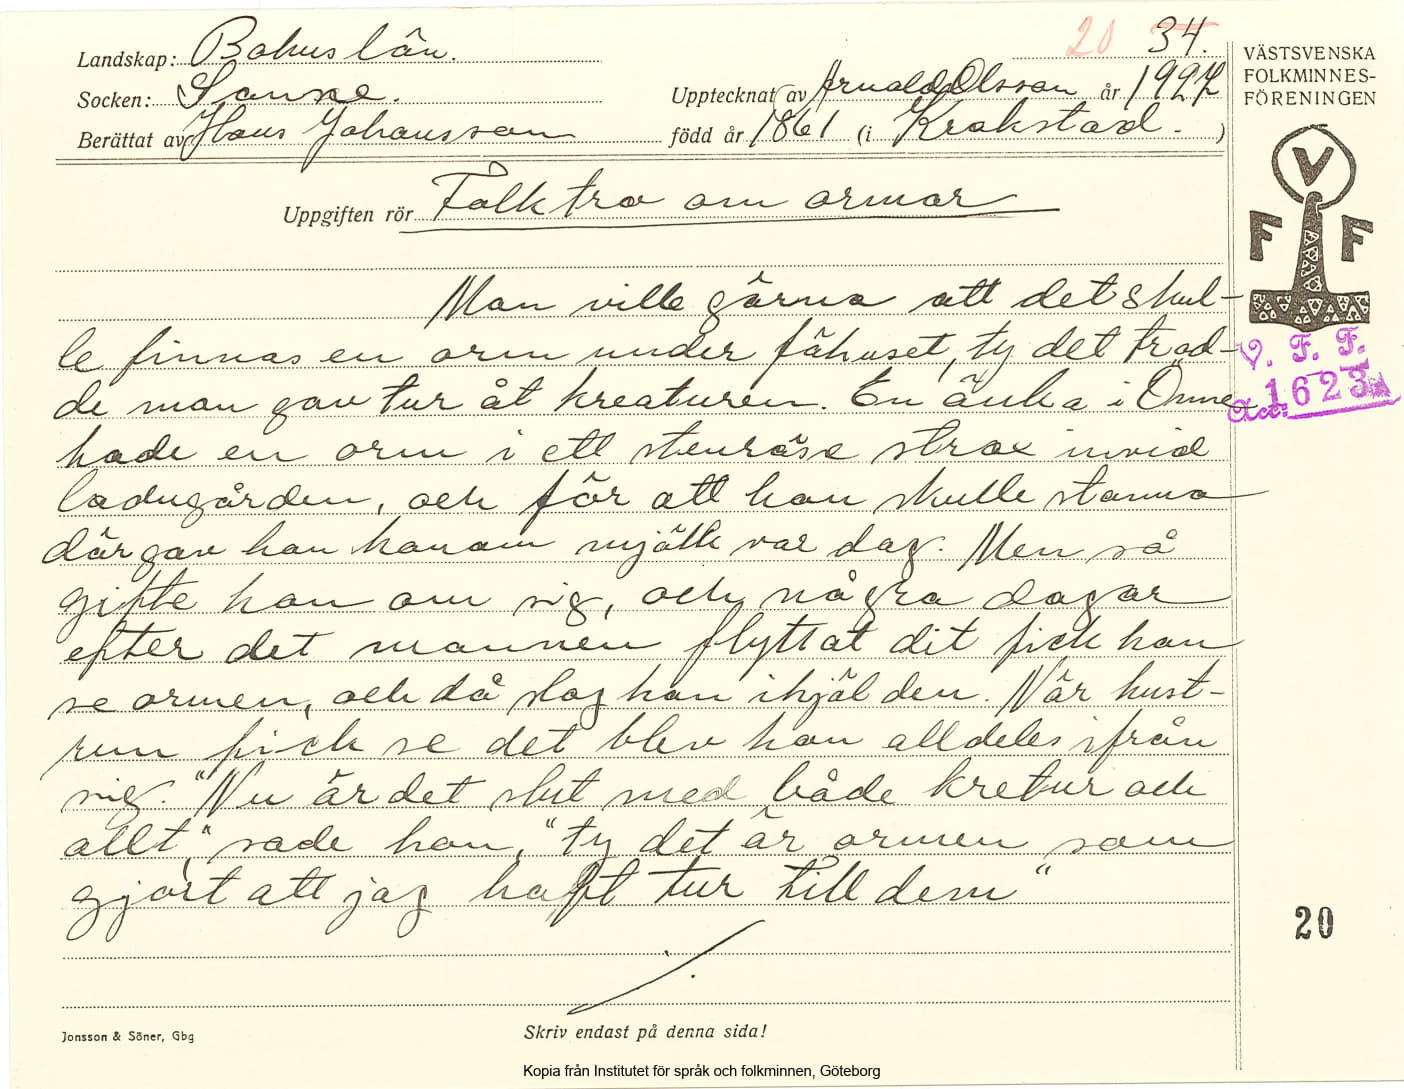 20 34.
Landskap: Bohuslän.
Socken: Sanne.
Upptecknat av Arnold Olsson år 1927
Berättat av Hans Johansson född år 1861 (i Krokstad. )
Uppgiften rör Folktro om ormar
Man ville gärna att det skul-
le finnas en orm under fähuset, ty det trod-
de man gav tur åt kreaturen. En änka i Önne
hade en orm i ett stenröse strax invid
ladugården, och för att han skulle stanna
där gav hon honom mjölk var dag. Men så
gifte hon om sig, och några dagar
efter det mannen flyttat dit fick han
se ormen, och då slog han ihjäl den. När hust-
run fick se det blev hon alldeles ifrån
sig. "Nu är det slut med både kretur och
allt," sade hon, "ty det är ormen som
gjort att jag haft tur till dem"
Jonsson & Söner, Gbg
Skriv endast på denna sida!
Kopia från Institutet för språk och folkminnen, Göteborg
VÄSTSVENSKA
FOLKMINNES-
FÖRENINGEN
V
F F
V. F. F.
Acc: 1623
20